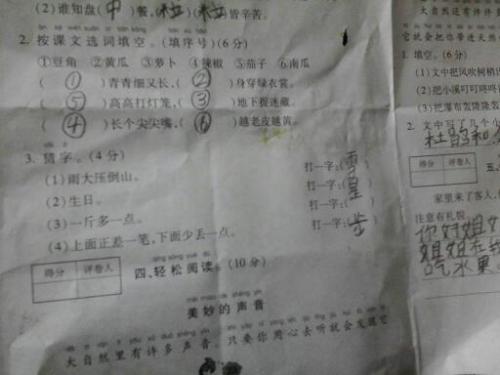 (2)谁知盘(中)餐,粒(粒)皆辛苦。
2. 按课文选词填空。(填序号)(6分)
①豆角 ②黄瓜 ③萝卜 ④辣椒 ⑤茄子 ⑥南瓜
(①)青青细又长,(②)身穿绿衣裳。
(⑤)高高打灯笼,(③)地下捉迷藏。
(④)长个尖尖嘴,(⑥)越老皮越黄。
3. 猜字。(4分)
(1)雨大压倒山。 打一字:(雪)
(2)生日。 打一字:(星)
(3)一斤多一点。 打一字:( )
(4)上面正差一笔,下面少丢一点。 打一字:(步)
得分 评卷人
四、轻松阅读。(10分)
美妙的声音
大自然里有许多声音。只要你用心去听就会发现它
大自然还有许许多
它就会把你带进大自然
1. 填空。(6分)
(1)文中把风吹树梢
(2)把小溪叮叮咚咚
(3)把瀑布轰隆隆
2. 文中写了几个
得分 评卷人
五、
家里来了客人,
注意有礼貌。
你好姐
姐姐
吃水果